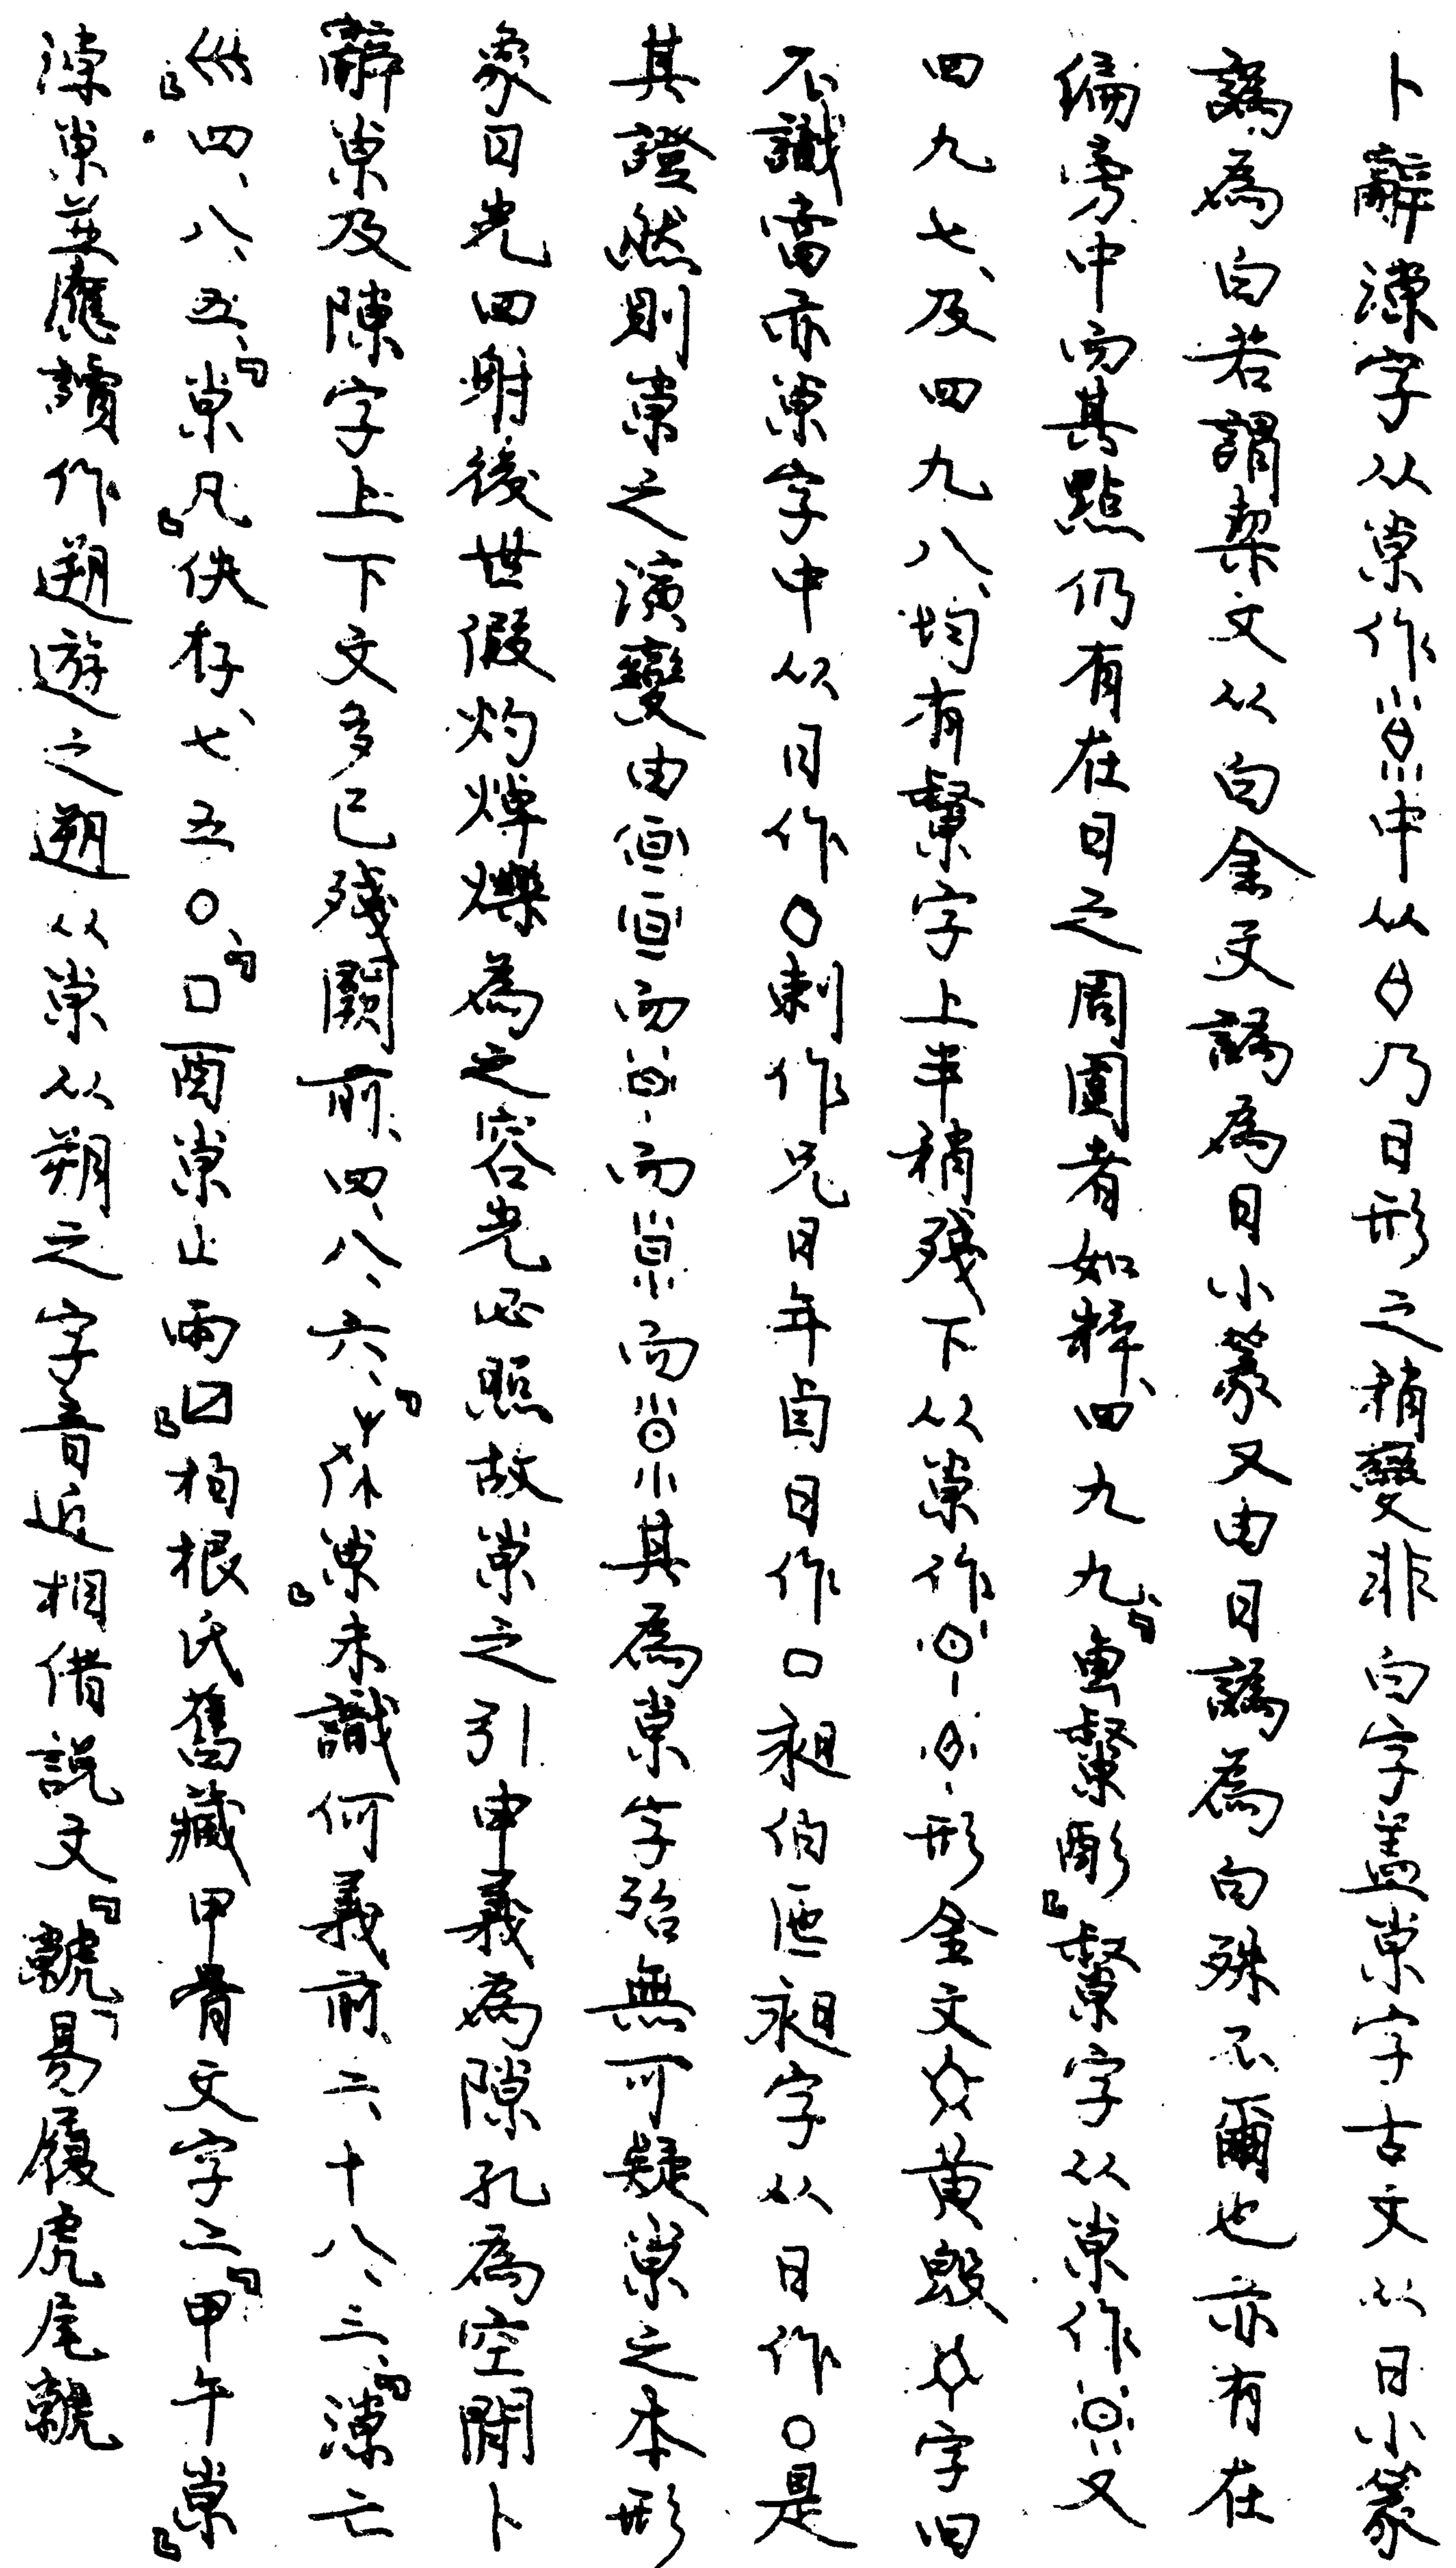 卜辭㵐字从𡭴作中从乃日形之稍變非白字蓋𡭴字古文从日小篆
譌為白若謂栔文从白金文譌為日小篆又由日譌為白殊不爾也亦有在
偏旁中而其點仍有在日之周圍者如粹、四九九、「叀䋣彫」䋣字从𡭴作又
四九七、及四九八、均有䋣字上半稍殘下从𡭴作形金文黃𣪘字旧
不識當亦𡭴字中从日作〇剌作兄日年卣日作口昶伯匜昶字从日作〇是
其證然則𡭴之演變由而而而其為𡭴字殆無可疑𡭴之本形
象日光四射後世假灼焯爍為之容光必照故𡭴之引申義為隙孔為空閒卜
辭𡭴及隙字上下文多已殘闕前、四、八、六、「𡭴」未識何義前、六、十八、三、「㵐亡
𡿧」、四、八、五、「𡭴凡」佚存、七五〇、「口酉𡭴止雨囗」柏根氏舊藏甲骨文字二「甲午𡭴」
㵐𡭴並應讀作遡遊之遡从𡭴从朔之字音近相借說文「虩易履虎尾虩